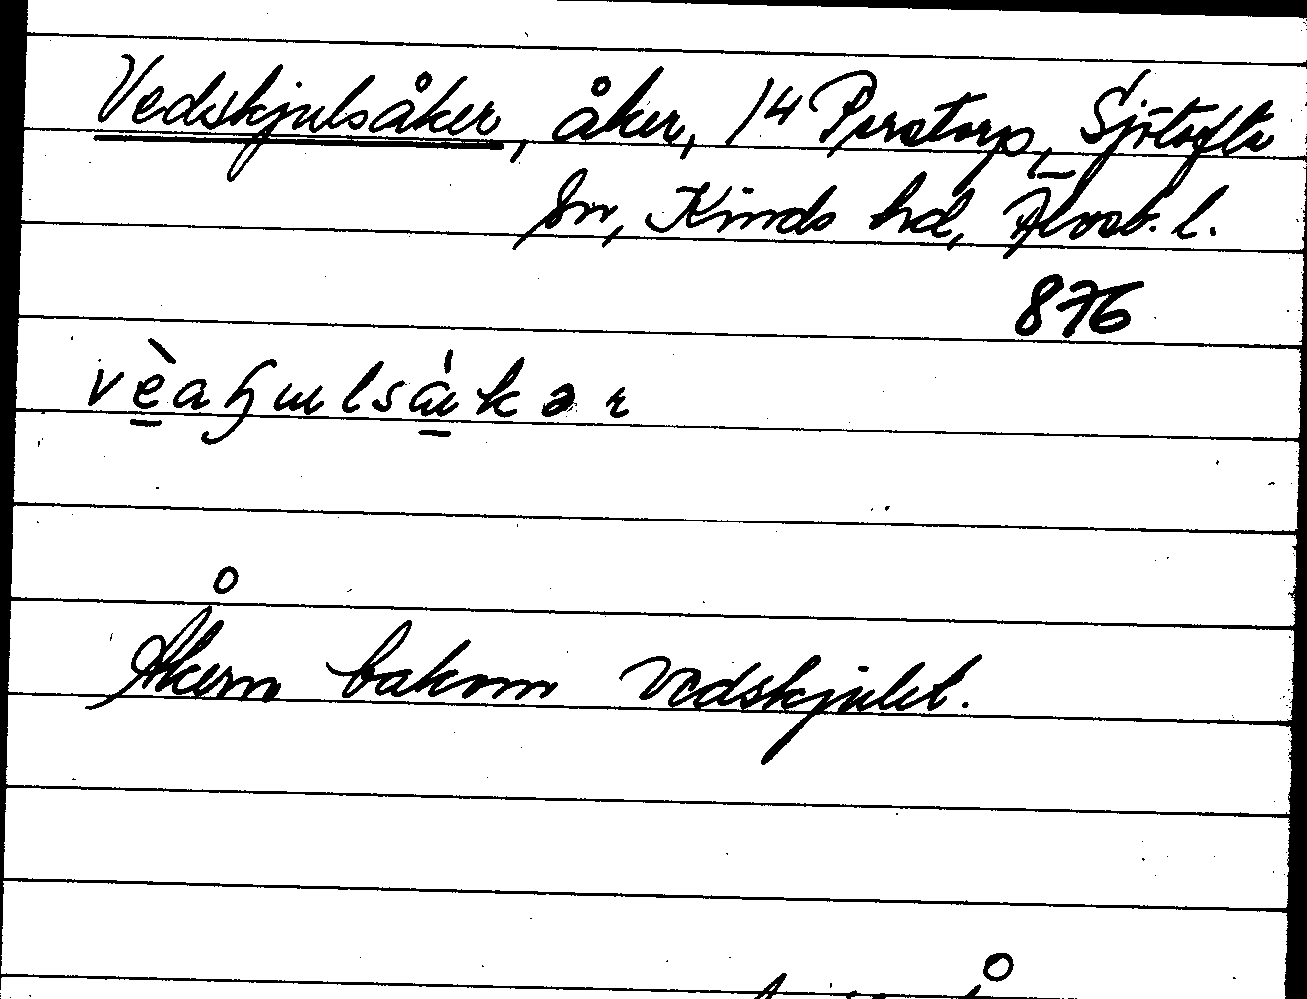 Vedskjulsåker, åker, 14 Perstorp, Sjötofta
sn, Kinds hd, Älvsb. l.
876
Åkern bakom vedskjulet.